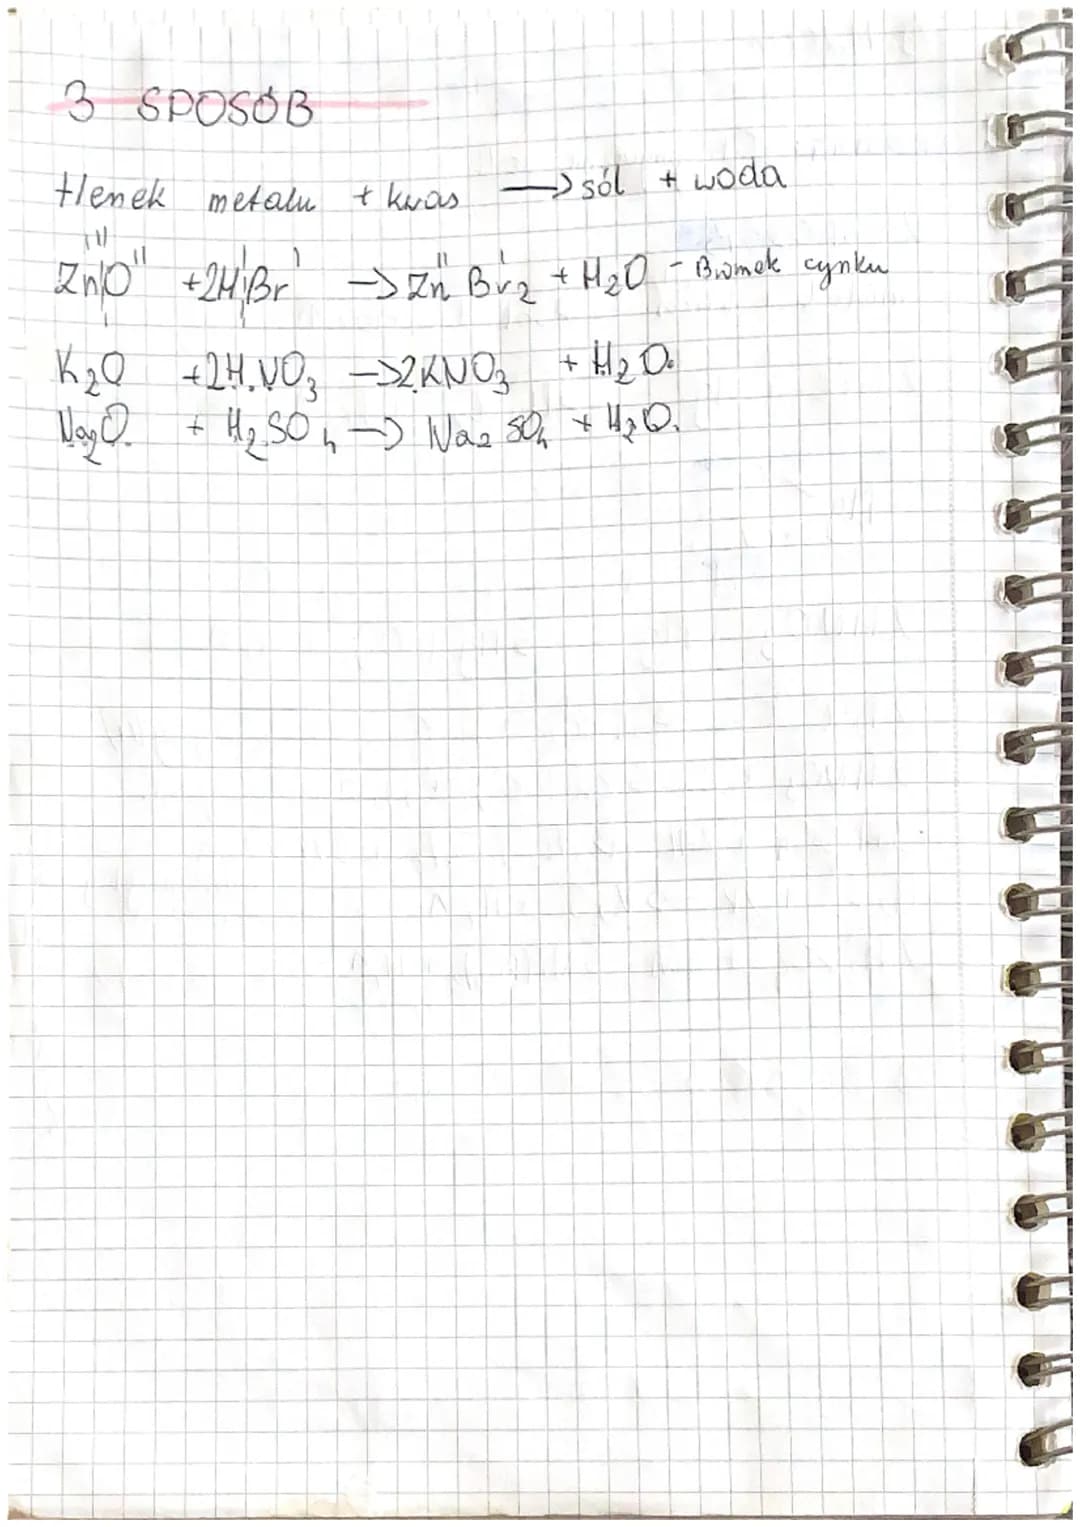 3 SPOSÓB
tlenek metalu + kwas → sól + woda
ZnO + 2HBr → ZnBr₂ + H₂O - Bromek cynku
K₂O + 2HNO₃ → 2KNO₃ + H₂O
Na₂O + H₂SO₄ → Na₂SO₄ + H₂O